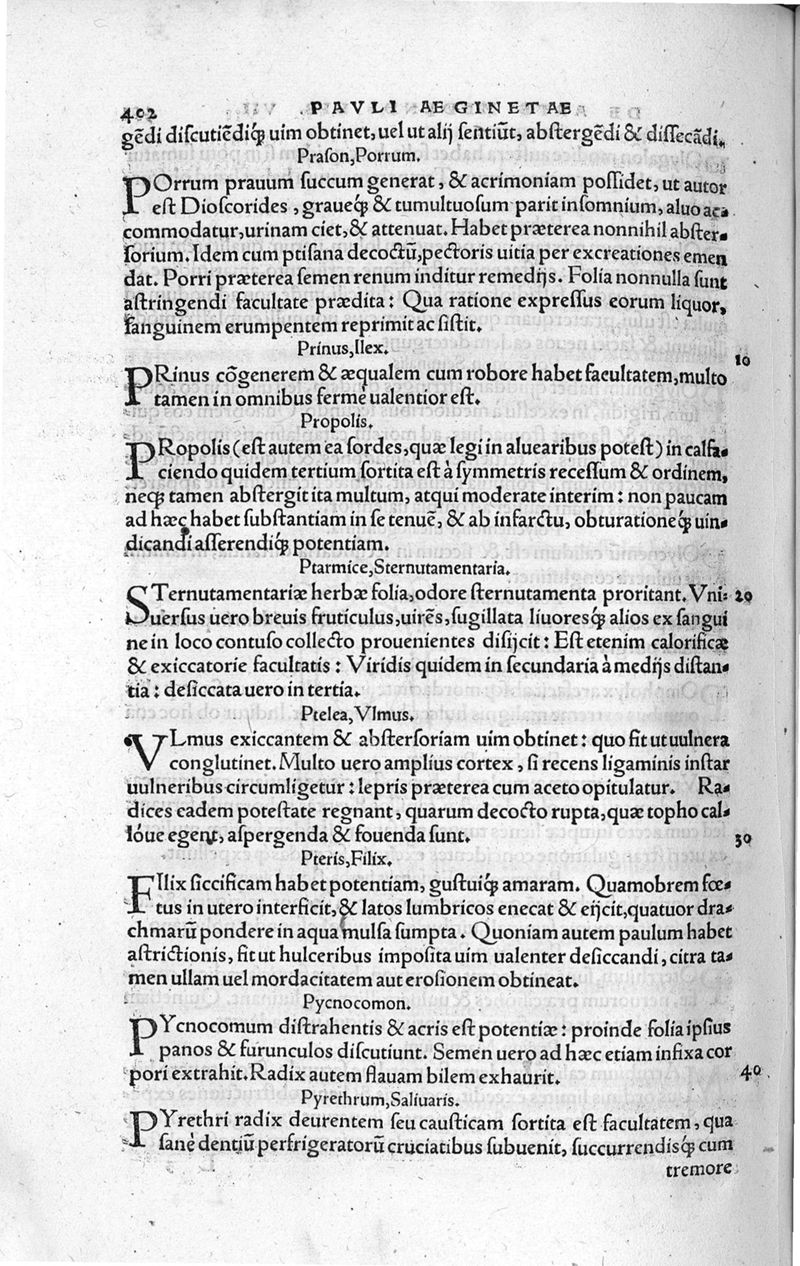 402 PAVLI AEGINETAE
gẽdi discutiẽdiq́; uim obtinet, uel ut alij sentiũt, abstergẽdi & dissecãdi.
Prason, Porrum.
POrrum prauum succum generat, & acrimoniam possidet, ut autor
est Dioscorides, graueq́; & tumultuosum parit insomnium, aluo ac-
commodatur, urinam ciet, & attenuat. Habet præterea nonnihil abster-
sorium. Idem cum ptisana decoctũ, pectoris uitia per excreationes emen
dat. Porri præterea semen renum inditur remedijs. Folia nonnulla sunt
astringendi facultate prædita: Qua ratione expressus eorum liquor,
sanguinem erumpentem reprimit ac sistit.
Prinus, Ilex.
10
PRinus cõgenerem & æqualem cum robore habet facultatem, multo
tamen in omnibus fermé ualentior est.
Propolis.
PRopolis (est autem ea sordes, quæ legi in aluearibus potest) in calfa-
ciendo quidem tertium sortita est à symmetris recessum & ordinem,
neq; tamen abstergit ita multum, atqui moderate interim: non paucam
ad hæc habet substantiam in se tenuẽ, & ab infarctu, obturationeq́; uin-
dicandi asserendiq́; potentiam.
Ptarmice, Sternutamentaria.
STernutamentariæ herbæ folia, odore sternutamenta proritant. Vni- 20
uersus uero breuis fruticulus, uirẽs, sugillata liuoresq́; alios ex sangui
ne in loco contuso collecto prouenientes disijcit: Est etenim calorificæ
& exiccatorie facultatis: Viridis quidem in secundaria à medijs distan-
tia: desiccata uero in tertia.
Ptelea, Vlmus.
VLmus exiccantem & abstersoriam uim obtinet: quo fit ut uulnera
conglutinet. Multo uero amplius cortex, si recens ligaminis instar
uulneribus circumligetur: lepris præterea cum aceto opitulatur. Ra-
dices eadem potestate regnant, quarum decocto rupta, quæ topho cal-
lóue egent, aspergenda & fouenda sunt.
30
Pteris, Filix.
FIlix siccificam habet potentiam, gustuiq́; amaram. Quamobrem fœ-
tus in utero interficit, & latos lumbricos enecat & eijcit, quatuor dra-
chmarũ pondere in aqua mulsa sumpta. Quoniam autem paulum habet
astrictionis, fit ut hulceribus imposita uim ualenter desiccandi, citra ta-
men ullam uel mordacitatem aut erosionem obtineat.
Pycnocomon.
PYcnocomum distrahentis & acris est potentiæ: proinde folia ipsius
panos & furunculos discutiunt. Semen uero ad hæc etiam infixa cor
pori extrahit. Radix autem flauam bilem exhaurit. 40
Pyrethrum, Saliuaris.
PYrethri radix deurentem seu causticam sortita est facultatem, qua
sané dentiũ perfrigeratorũ cruciatibus subuenit, succurrendisq́; cum
tremore